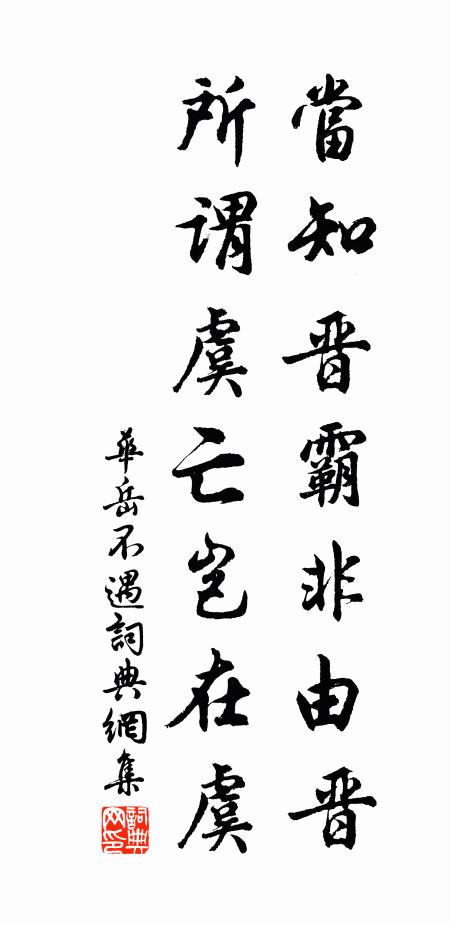 當知晋霸非由晋
所謂虞亡豈在虞
華岳不遇詞典網集
詞典网印